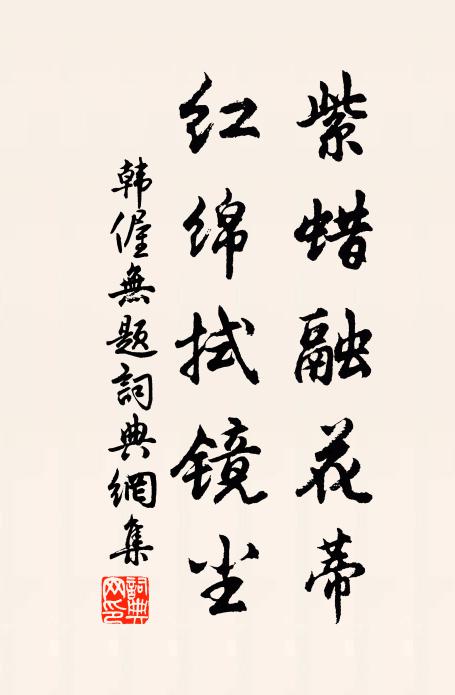 紫蜡融花蒂
红绵拭镜尘
韩偓無题詞典網集
詞典网印